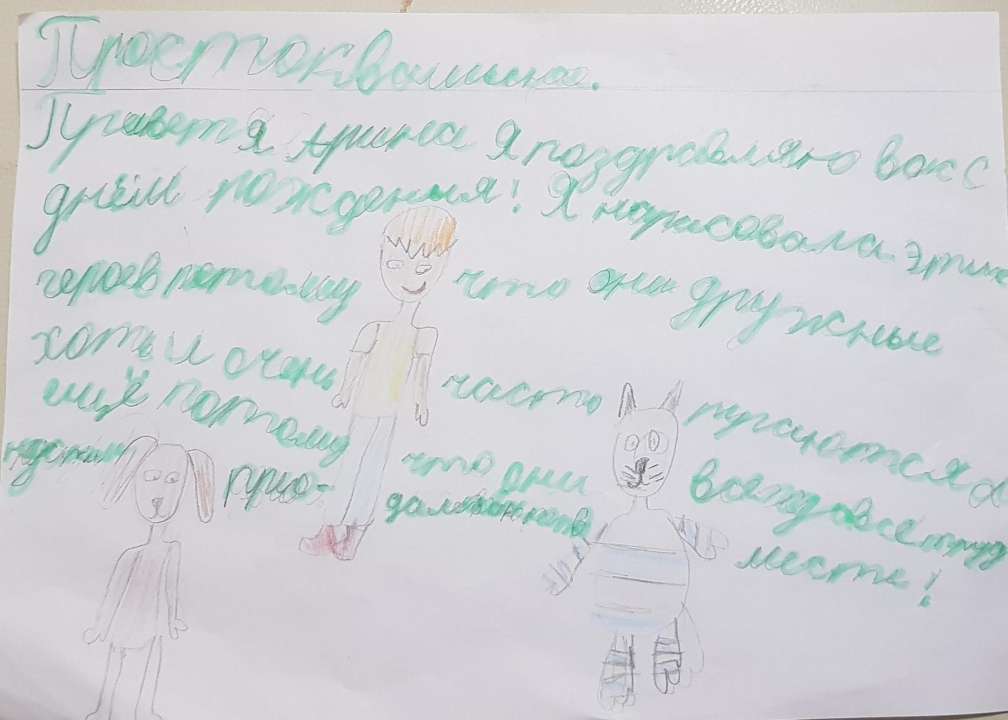 Простоквашино.
Привет Я Арина Я поздравляю вас с
днём рождения! Я нарисовала этих
героев потому что они дружные
хоть и очень часто ругаются а
ещё потому что они всегда все труд
ности прео- далевают вместе!